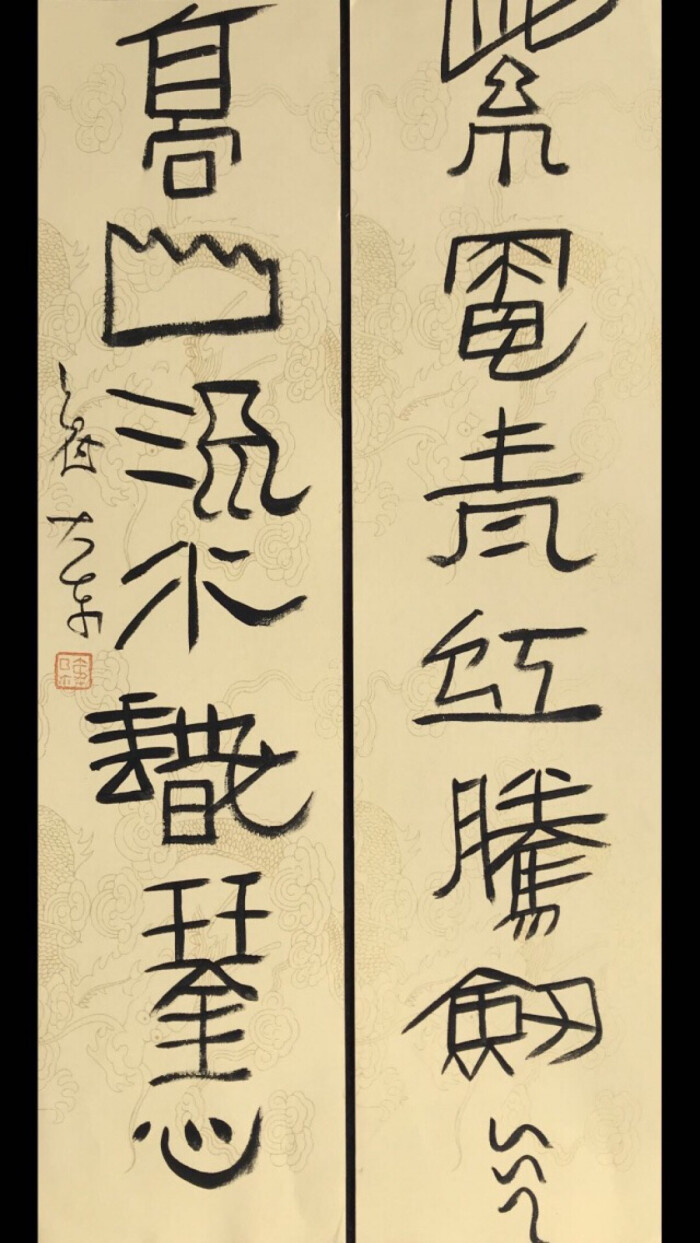 紫電青虹騰劍气
高山流水識琴心